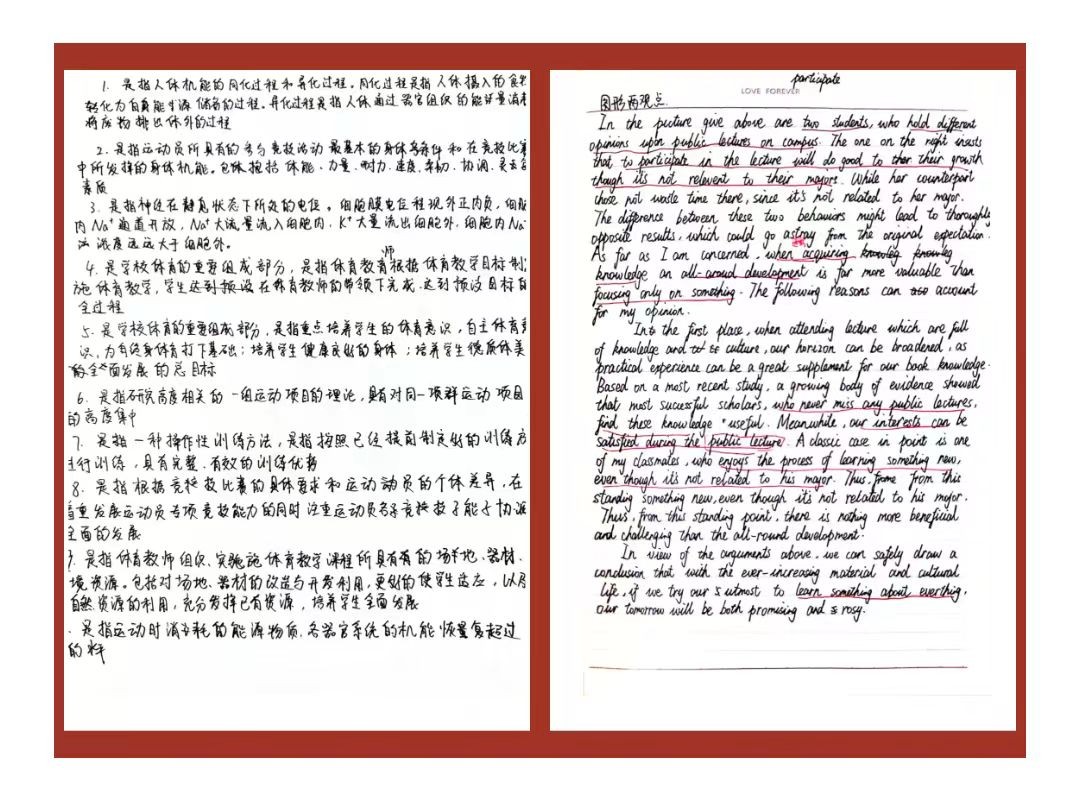 1. 是指人体机能的同化过程和异化过程。同化过程是指人体摄入的食
转化为自身能生源储备的过程。异化过程是指人体通过器官组织的能量消
将废物排出体外的过程
2. 是指运动员所具有的参与竞技活动最基本的身体条件和在竞技比赛
中所发挥的身体机能。包括体能、力量、耐力、速度、柔韧、协调、灵
素质
3. 是指神经在静息状态下所处的电位。细胞膜电位呈现外正内负,细胞
内Na⁺通道开放,Na⁺大流量流入细胞内,K⁺大量流出细胞外,细胞内Na
浓度远远大于细胞外。
师
4. 是学校体育的重要组成部分,是指体育教育根据体育教学目标制
施体育教学,学生达到预设在体育教师的带领下完成、达到预设目标的
全过程
5. 是学校体育的重要组成部分,是指重点培养学生的体育意识,自主体育
识,为有终身体育打下基础;培养学生健康良好的身体;培养学生德质体美
全面发展的总目标
6. 是指研究高度相关的一组运动项目的理论,具有对同一项群运动项目
的高度集中
7. 是指一种操作性训练方法,是指按照已经提前制定好的训练方
进行训练,具有完整、有效的训练优势
8. 是指根据竞技比赛的具体要求和运动员的个体差异,在
重发展运动员专项竞技能力的同时注重运动员各子竞技子能力协调
全面的发展
9. 是指体育教师组织、实施体育教学课程所具有的场地、器材、
境资源。包括对场地、器材的改造与开发利用,更好的使学生适应,以及
自然资源的利用,充分发挥已有资源,培养学生全面发展
. 是指运动时消耗的能源物质、各器官系统的机能恢复起过
的
participate
LOVE FOREVER
图形两观点.
In the picture give above are two students, who hold different
opinions upon public lectures on campus. The one on the right insists
that to participate in the lecture will do good to their growth
though it's not relevent to their majors. While her counterpart
chose not waste time there, since it's not related to her major.
The difference between these two behaviors might lead to thoroughly
opposite results, which could go astray from the original expectation.
As far as I am concerned, when acquiring
knowledge an all-aroud development is far more valuable than
focusing only on something. The following reasons can account
for my opinion.
In the first place, when attending lecture which are full
of knowledge and culture, our horizon can be broadened, as
practical experience can be a great supplement for our book knowledge.
Based on a most recent study, a growing body of evidence showed
that most successful scholars, who never miss any public lectures,
find these knowledge useful. Meanwhile, our interests can be
satisfied during the public lecture. A classic case in point is one
of my classmates, who enjoys the process of learning something new,
even though it's not related to his major. Thus, from from this
standing something new, even though it's not related to his major.
Thus, from this standing point, there is nothing more beneficial
and challenging than the all-round development.
In view of the arguments above, we can safely draw a
conclusion that with the ever-increasing material and cultural
life, if we try our utmost to learn something about everthing,
our tomorrow will be both promising and rosy.